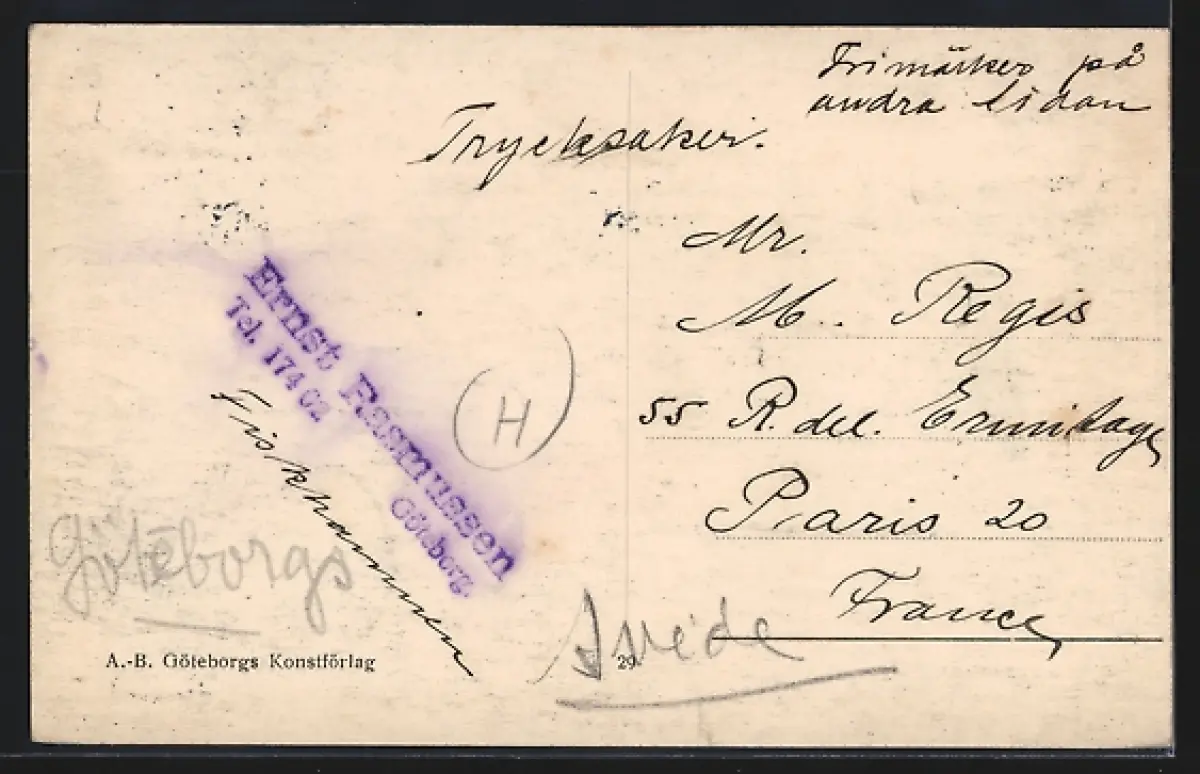 Frimärker på
andra sidan
Trycksaker.
Mr.
M. Regis
55 R. del. Ermitage
Paris 20
France
Ernst Rasmussen
Tel. 174 02
Göteborg.
Fiskhamnen
H
Göteborgs
Suède
A.-B. Göteborgs Konstförlag
29